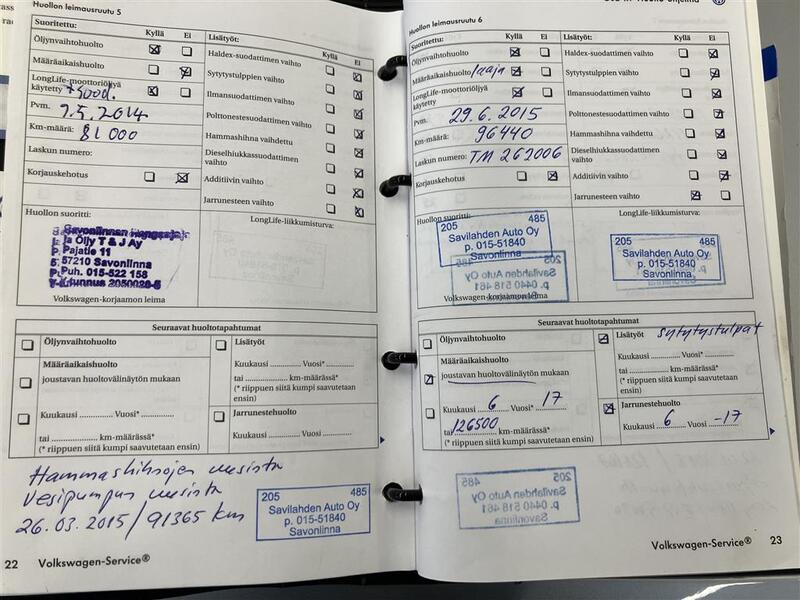 Huollon leimausruutu 5
Suoritettu: Kyllä Ei
Öljynvaihtohuolto
Määräaikaishuolto
LongLife-moottoriöljyä
käytetty +suod.
Pvm. 9.5.2014
Km-määrä: 81 000
Laskun numero:
Korjauskehotus
Lisätyöt: Kyllä Ei
Haldex-suodattimen vaihto
Sytytystulppien vaihto
Ilmansuodattimen vaihto
Polttonestesuodattimen vaihto
Hammashihna vaihdettu
Dieselhiukkassuodattimen
vaihto
Additiivin vaihto
Jarrunesteen vaihto
Huollon suoritti:
LongLife-liikkumisturva:
Savonlinnan
ja Öljy T & J Ay
Pajatie 11
57210 Savonlinna
Puh. 015-522 158
Y-tunnus 2050020-5
Volkswagen-korjaamon leima
Seuraavat huoltotapahtumat
Öljynvaihtohuolto
Määräaikaishuolto
joustavan huoltovälinäytön mukaan
Kuukausi Vuosi*
tai km-määrässä*
(* riippuen siitä kumpi saavutetaan ensin)
Lisätyöt
Kuukausi Vuosi*
tai km-määrässä*
(* riippuen siitä kumpi saavutetaan
ensin)
Jarrunestehuolto
Kuukausi Vuosi
Hammashihnojen uusinta
Vesipumpun uusinta
26.03.2015/91365 km
205 485
Savilahden Auto Oy
p. 015-51840
Savonlinna
22 Volkswagen-Service®
Huollon leimausruutu 6
Suoritettu: Kyllä Ei
Öljynvaihtohuolto
Määräaikaishuolto /laaja
LongLife-moottoriöljyä
käytetty
Pvm. 29.6.2015
Km-määrä: 96440
Laskun numero: TM 262006
Korjauskehotus
Lisätyöt: Kyllä Ei
Haldex-suodattimen vaihto
Sytytystulppien vaihto
Ilmansuodattimen vaihto
Polttonestesuodattimen vaihto
Hammashihna vaihdettu
Dieselhiukkassuodattimen
vaihto
Additiivin vaihto
Jarrunesteen vaihto
Huollon suoritti:
LongLife-liikkumisturva:
205 485
Savilahden Auto Oy
p. 015-51840
Savonlinna
205 485
Savilahden Auto Oy
p. 015-51840
Savonlinna
Volkswagen-korjaamon leima
Seuraavat huoltotapahtumat
Öljynvaihtohuolto
Määräaikaishuolto
joustavan huoltovälinäytön mukaan
Kuukausi 6 Vuosi* 17
tai 126500 km-määrässä*
(* riippuen siitä kumpi saavutetaan ensin)
Lisätyöt sytytystulpat
Kuukausi Vuosi*
tai km-määrässä*
(* riippuen siitä kumpi saavutetaan
ensin)
Jarrunestehuolto
Kuukausi 6 Vuosi -17
Volkswagen-Service® 23